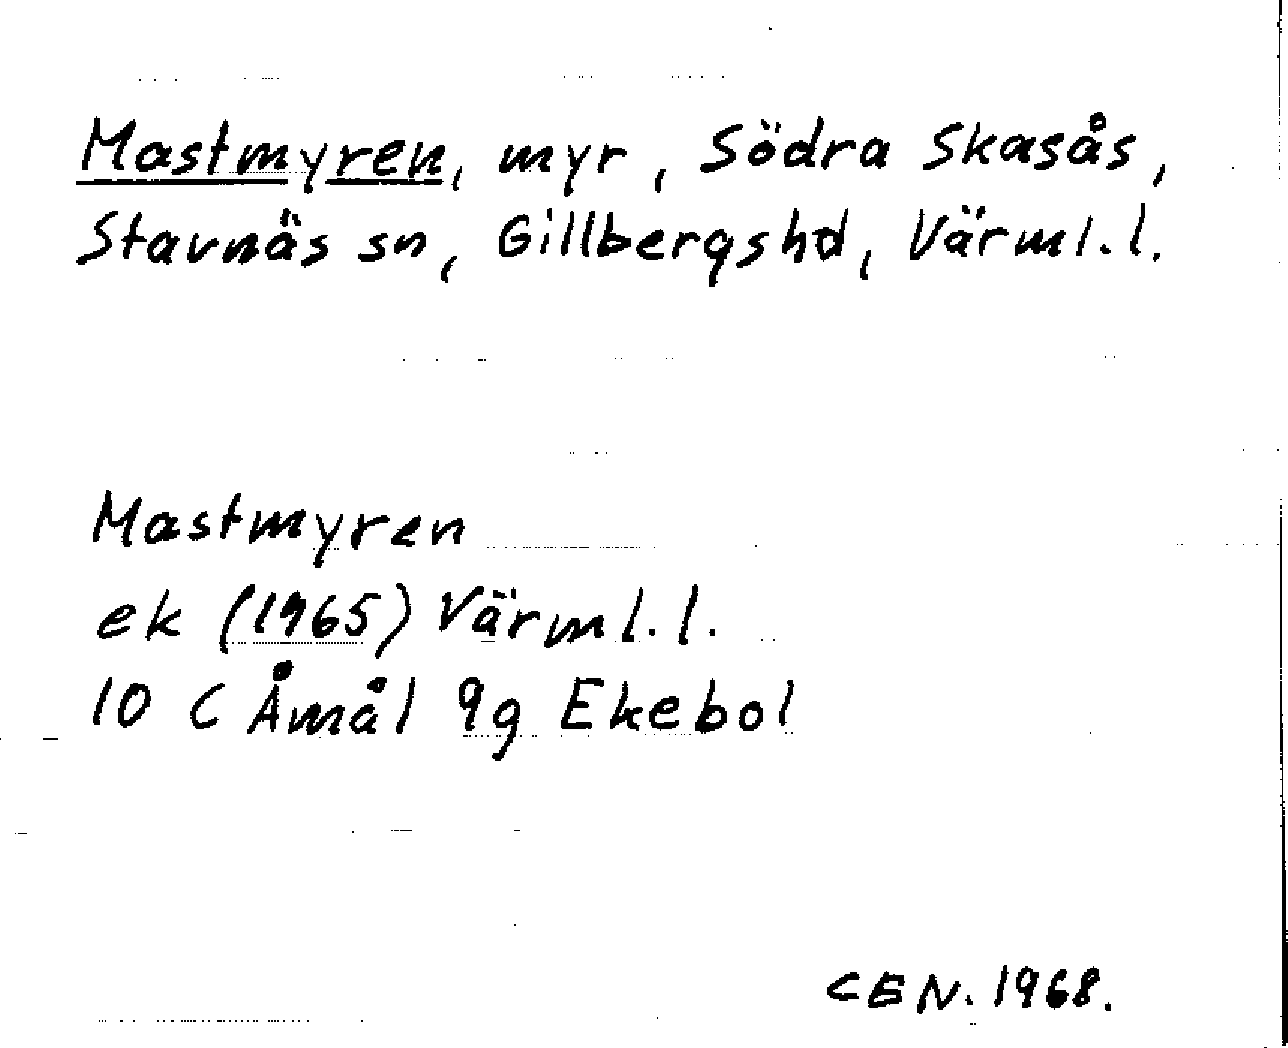 Mastmyren, myr, Södra Skasås,
Stavnäs sn, Gillbergshd, Värml.l.
Mastmyren
ek (1965) Värml.l.
10 C Åmål 9g Ekebol
CEN. 1968.